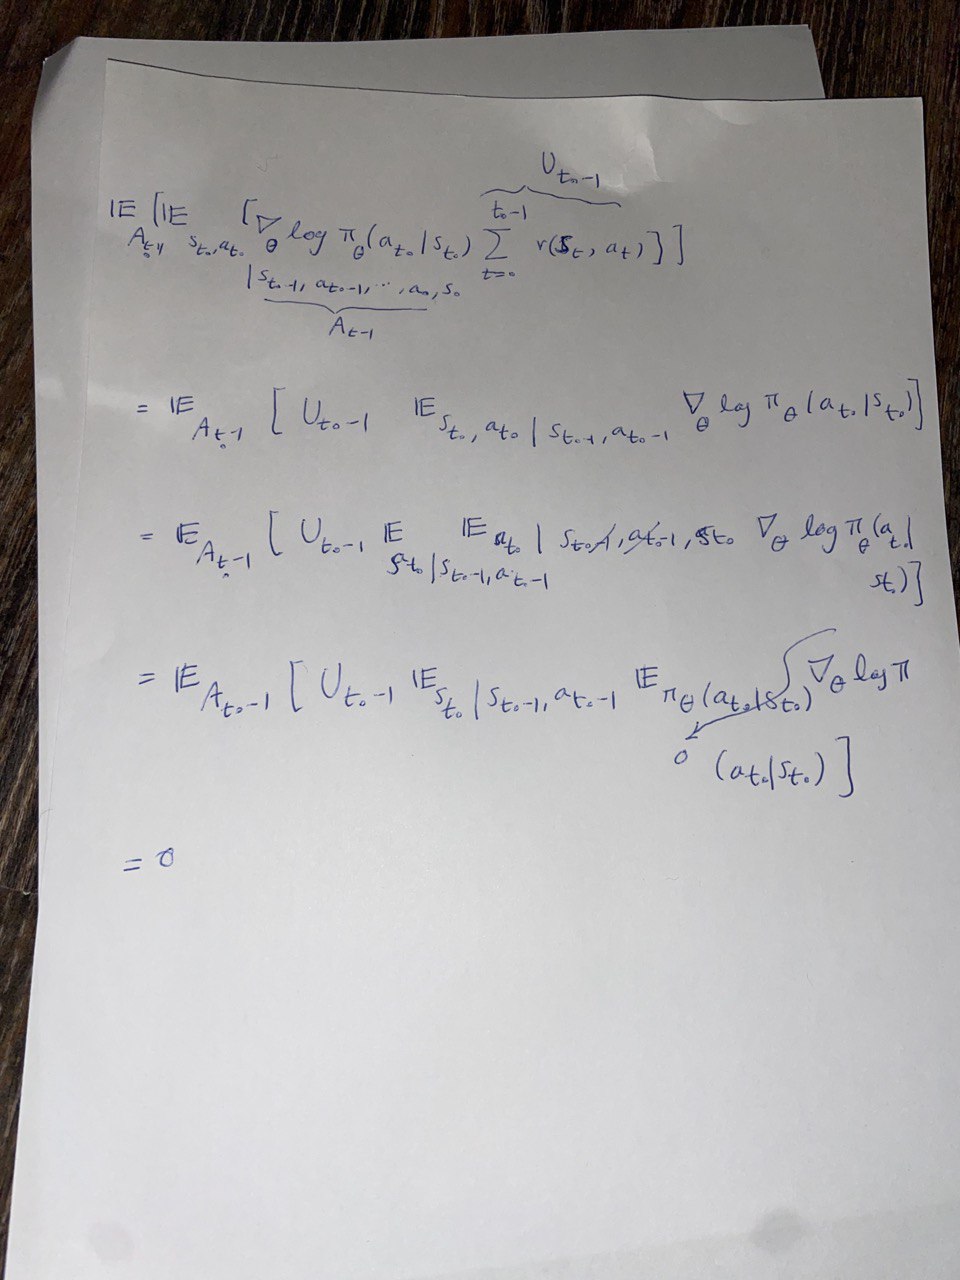 U_{t₀-1}
𝔼_{A_{t₀-1}} [𝔼_{s_{t₀}, a_{t₀} | s_{t₀-1}, a_{t₀-1}, ..., a₀, s₀} [∇_θ log π_θ(a_{t₀}|s_{t₀}) ∑_{t=0}^{t₀-1} r(s_t, a_t)]]
A_{t-1}
= 𝔼_{A_{t₀-1}} [U_{t₀-1} 𝔼_{s_{t₀}, a_{t₀} | s_{t₀-1}, a_{t₀-1}} ∇_θ log π_θ(a_{t₀}|s_{t₀})]
= 𝔼_{A_{t₀-1}} [U_{t₀-1} 𝔼_{s_{t₀} | s_{t₀-1}, a_{t₀-1}} 𝔼_{a_{t₀} | s_{t₀-1}, a_{t₀-1}, s_{t₀}} ∇_θ log π_θ(a_{t₀}|
s_{t₀})]
= 𝔼_{A_{t₀-1}} [U_{t₀-1} 𝔼_{s_{t₀} | s_{t₀-1}, a_{t₀-1}} 𝔼_{π_θ(a_{t₀}|s_{t₀})} ∇_θ log π
0 (a_{t₀}|s_{t₀})]
= 0